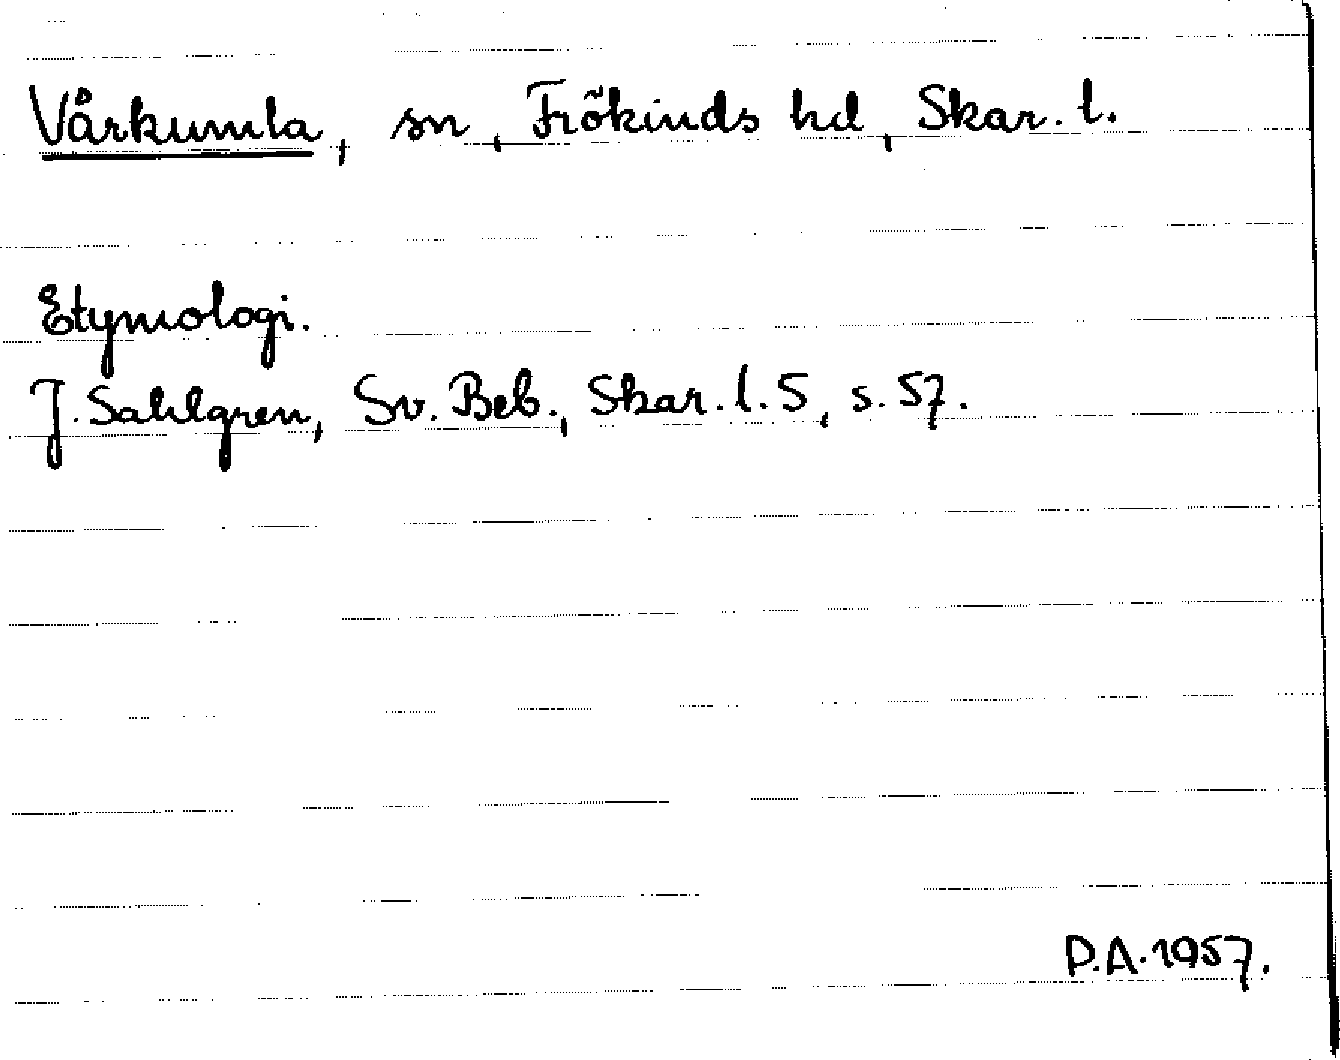 Vårkumla, sn, Frökinds hd, Skar. l.
Etymologi.
J. Sahlgren, Sv. Beb., Skar. l. 5, s. 57.
P.A. 1957.